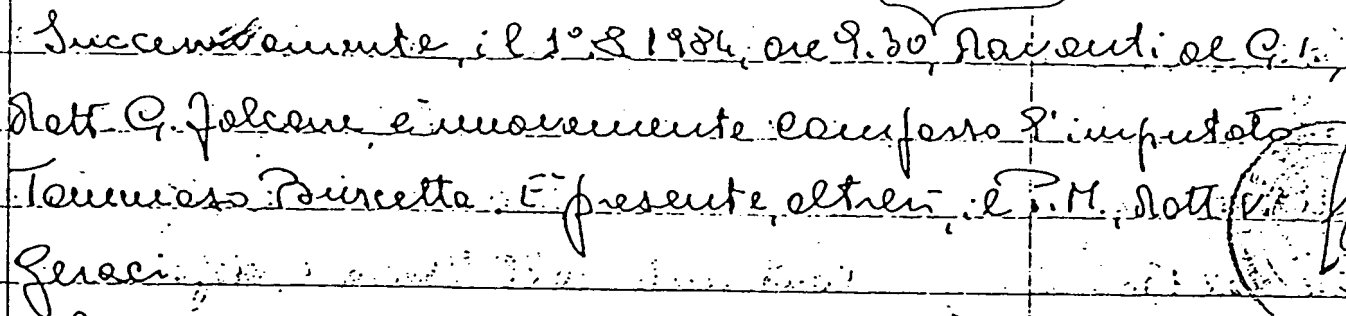 Successivamente, il 1° 8 1984, ore 9.30, davanti al G.I.,
dott. G. Falcone è nuovamente comparso l'imputato
Tommaso Buscetta. E' presente, altresì, il P.M., dott. V.
Geraci.